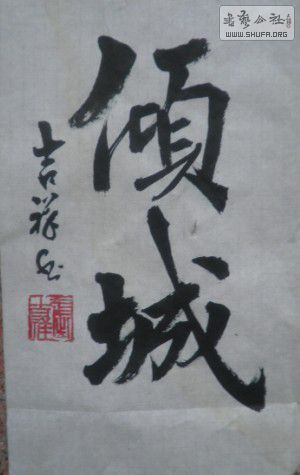 傾城
吉祥书
書艺公社
WWW.SHUFA.ORG